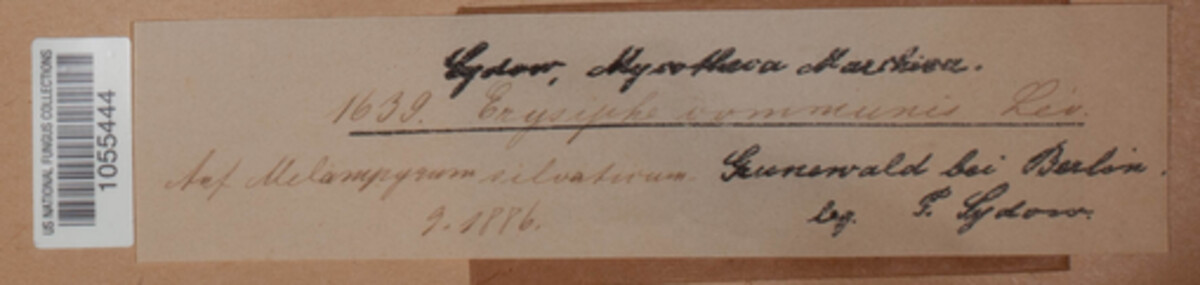 US NATIONAL FUNGUS COLLECTIONS
1055444
Sydow, Mycotheca Marchica.
1639. Erysiphe communis Lév.
Auf Melampyrum silvaticum. Grunewald bei Berlin.
9.1886. leg. P. Sydow.